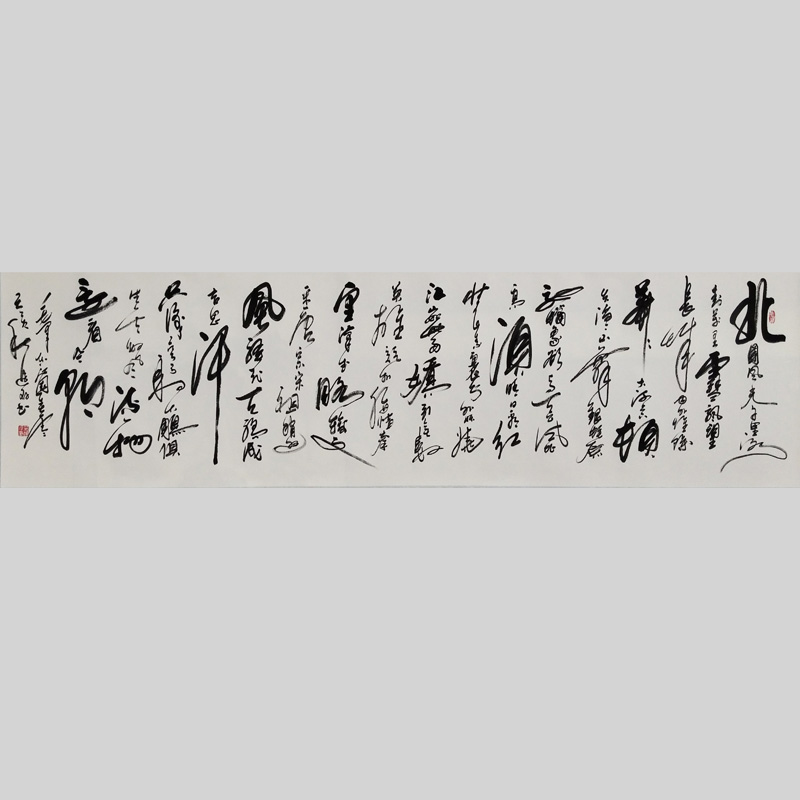 北國風光千里冰
封萬里雪飄望
長城內外惟餘
莽莽大河上下頓
失滔滔山舞銀蛇原
馳蠟象欲與天公試比
高須晴日看紅
裝素裹分外妖嬈
江山如此多嬌引無數
英雄競折腰惜秦
皇漢武略輸文
采唐宗宋祖稍遜
風騷一代天驕成
吉思汗
只識彎弓射大鵰俱
往矣數風流人物
還看今朝
毛澤東沁園春雪